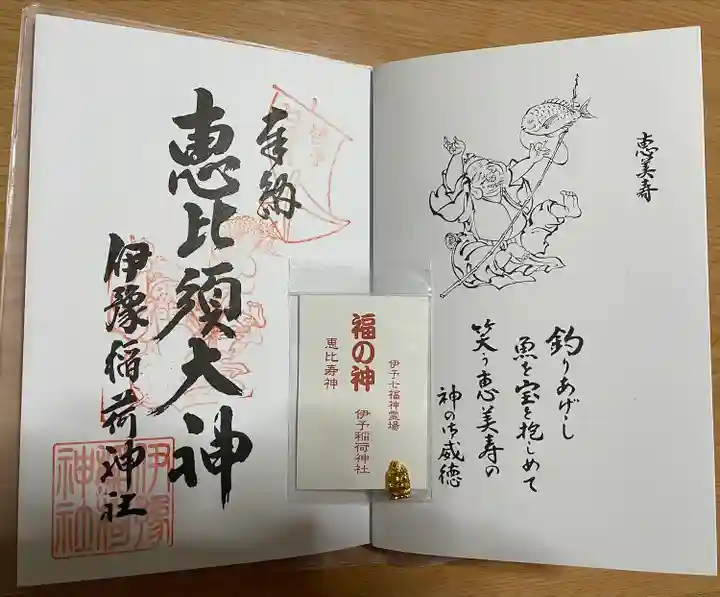 奉納
恵比須大神
伊豫稲荷神社
伊豫
稲荷
神社
伊予七福神霊場
福の神
恵比寿神
伊予稲荷神社
恵美寿
釣りあげし
魚を宝と抱しめて
笑う恵美寿の
神の御威徳